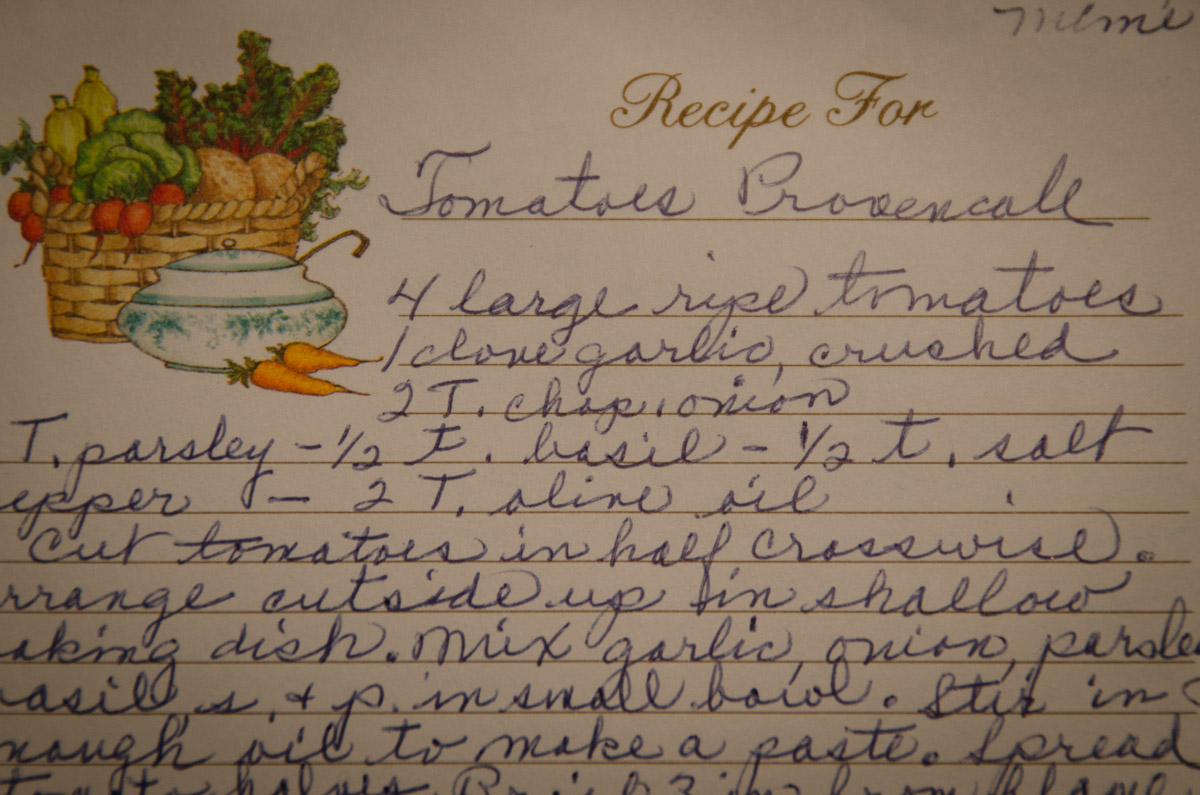 Mimi
Recipe For
Tomatoes Provencale
4 large ripe tomatoes
1 clove garlic, crushed
2 T. chop. onion
T. parsley - 1/2 t. basil - 1/2 t. salt
epper - 2 T. olive oil
Cut tomatoes in half crosswise.
rrange cutside up in shallow
aking dish. Mix garlic, onion, parsle
basil, s. & p. in small bowl. Stir in
nough oil to make a paste. Spread
tomato halves. Broil 3 in from flame